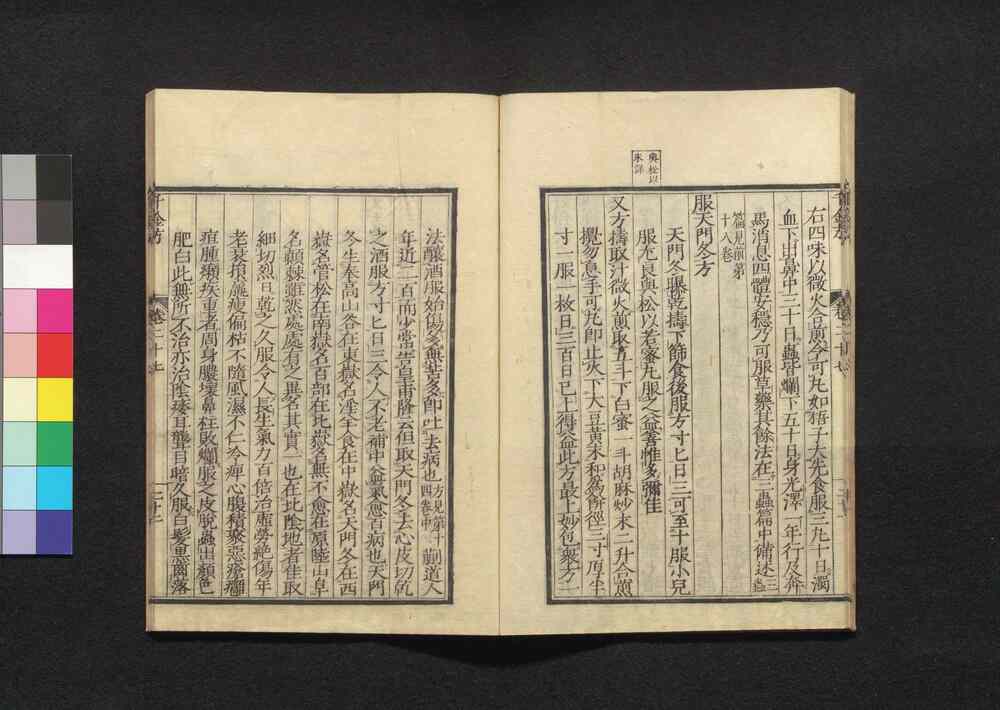 奧松以
米詳
右四味以微火合煎令可丸如梧子大先食服三丸十日濁
血下出鼻中三十日蟲皆爛下五十日身光澤一年行及奔
馬消息四體安穩乃可服草藥其餘法在三蟲篇中備述三蟲
篇見前第
十八卷
服天門冬方
天門冬曝乾擣下篩食後服方寸匕日三可至十服小兒
服尤良與松以若蜜丸服之益善惟多彌佳
又方擣取汁微火煎取五斗下白蜜一斗胡麻炒末二升合煎
攪勿息手可丸即止火下大豆黃末和為餅徑三寸厚半
寸一服一枚日三百日已上得益此方最上妙包眾方一
法釀酒服始傷多無苦多即吐去病也方見第十四卷中蒯道人
年近二百而少常告皇甫隆云但取天門冬去心皮切乾
之酒服方寸匕日三令人不老補中益氣愈百病也天門
冬生奉高山谷在東嶽名淫羊食在中嶽名天門冬在西
嶽名管松在南嶽名百部在北嶽名無不愈在原陸山阜
名顛棘雖然處處有之異名其實一也在北陰地者佳取
細切烈日乾之久服令人長生氣力百倍治虛勞絕傷年
老衰損羸瘦偏枯不隨風濕不仁冷痺心腹積聚惡瘡癰
疽腫癩疾重者周身膿壞鼻柱敗爛服之皮脫蟲出顏色
肥白此無所不治亦治陰痿耳聾目暗久服白髮黑齒落
千金方
卷二十七
二十二